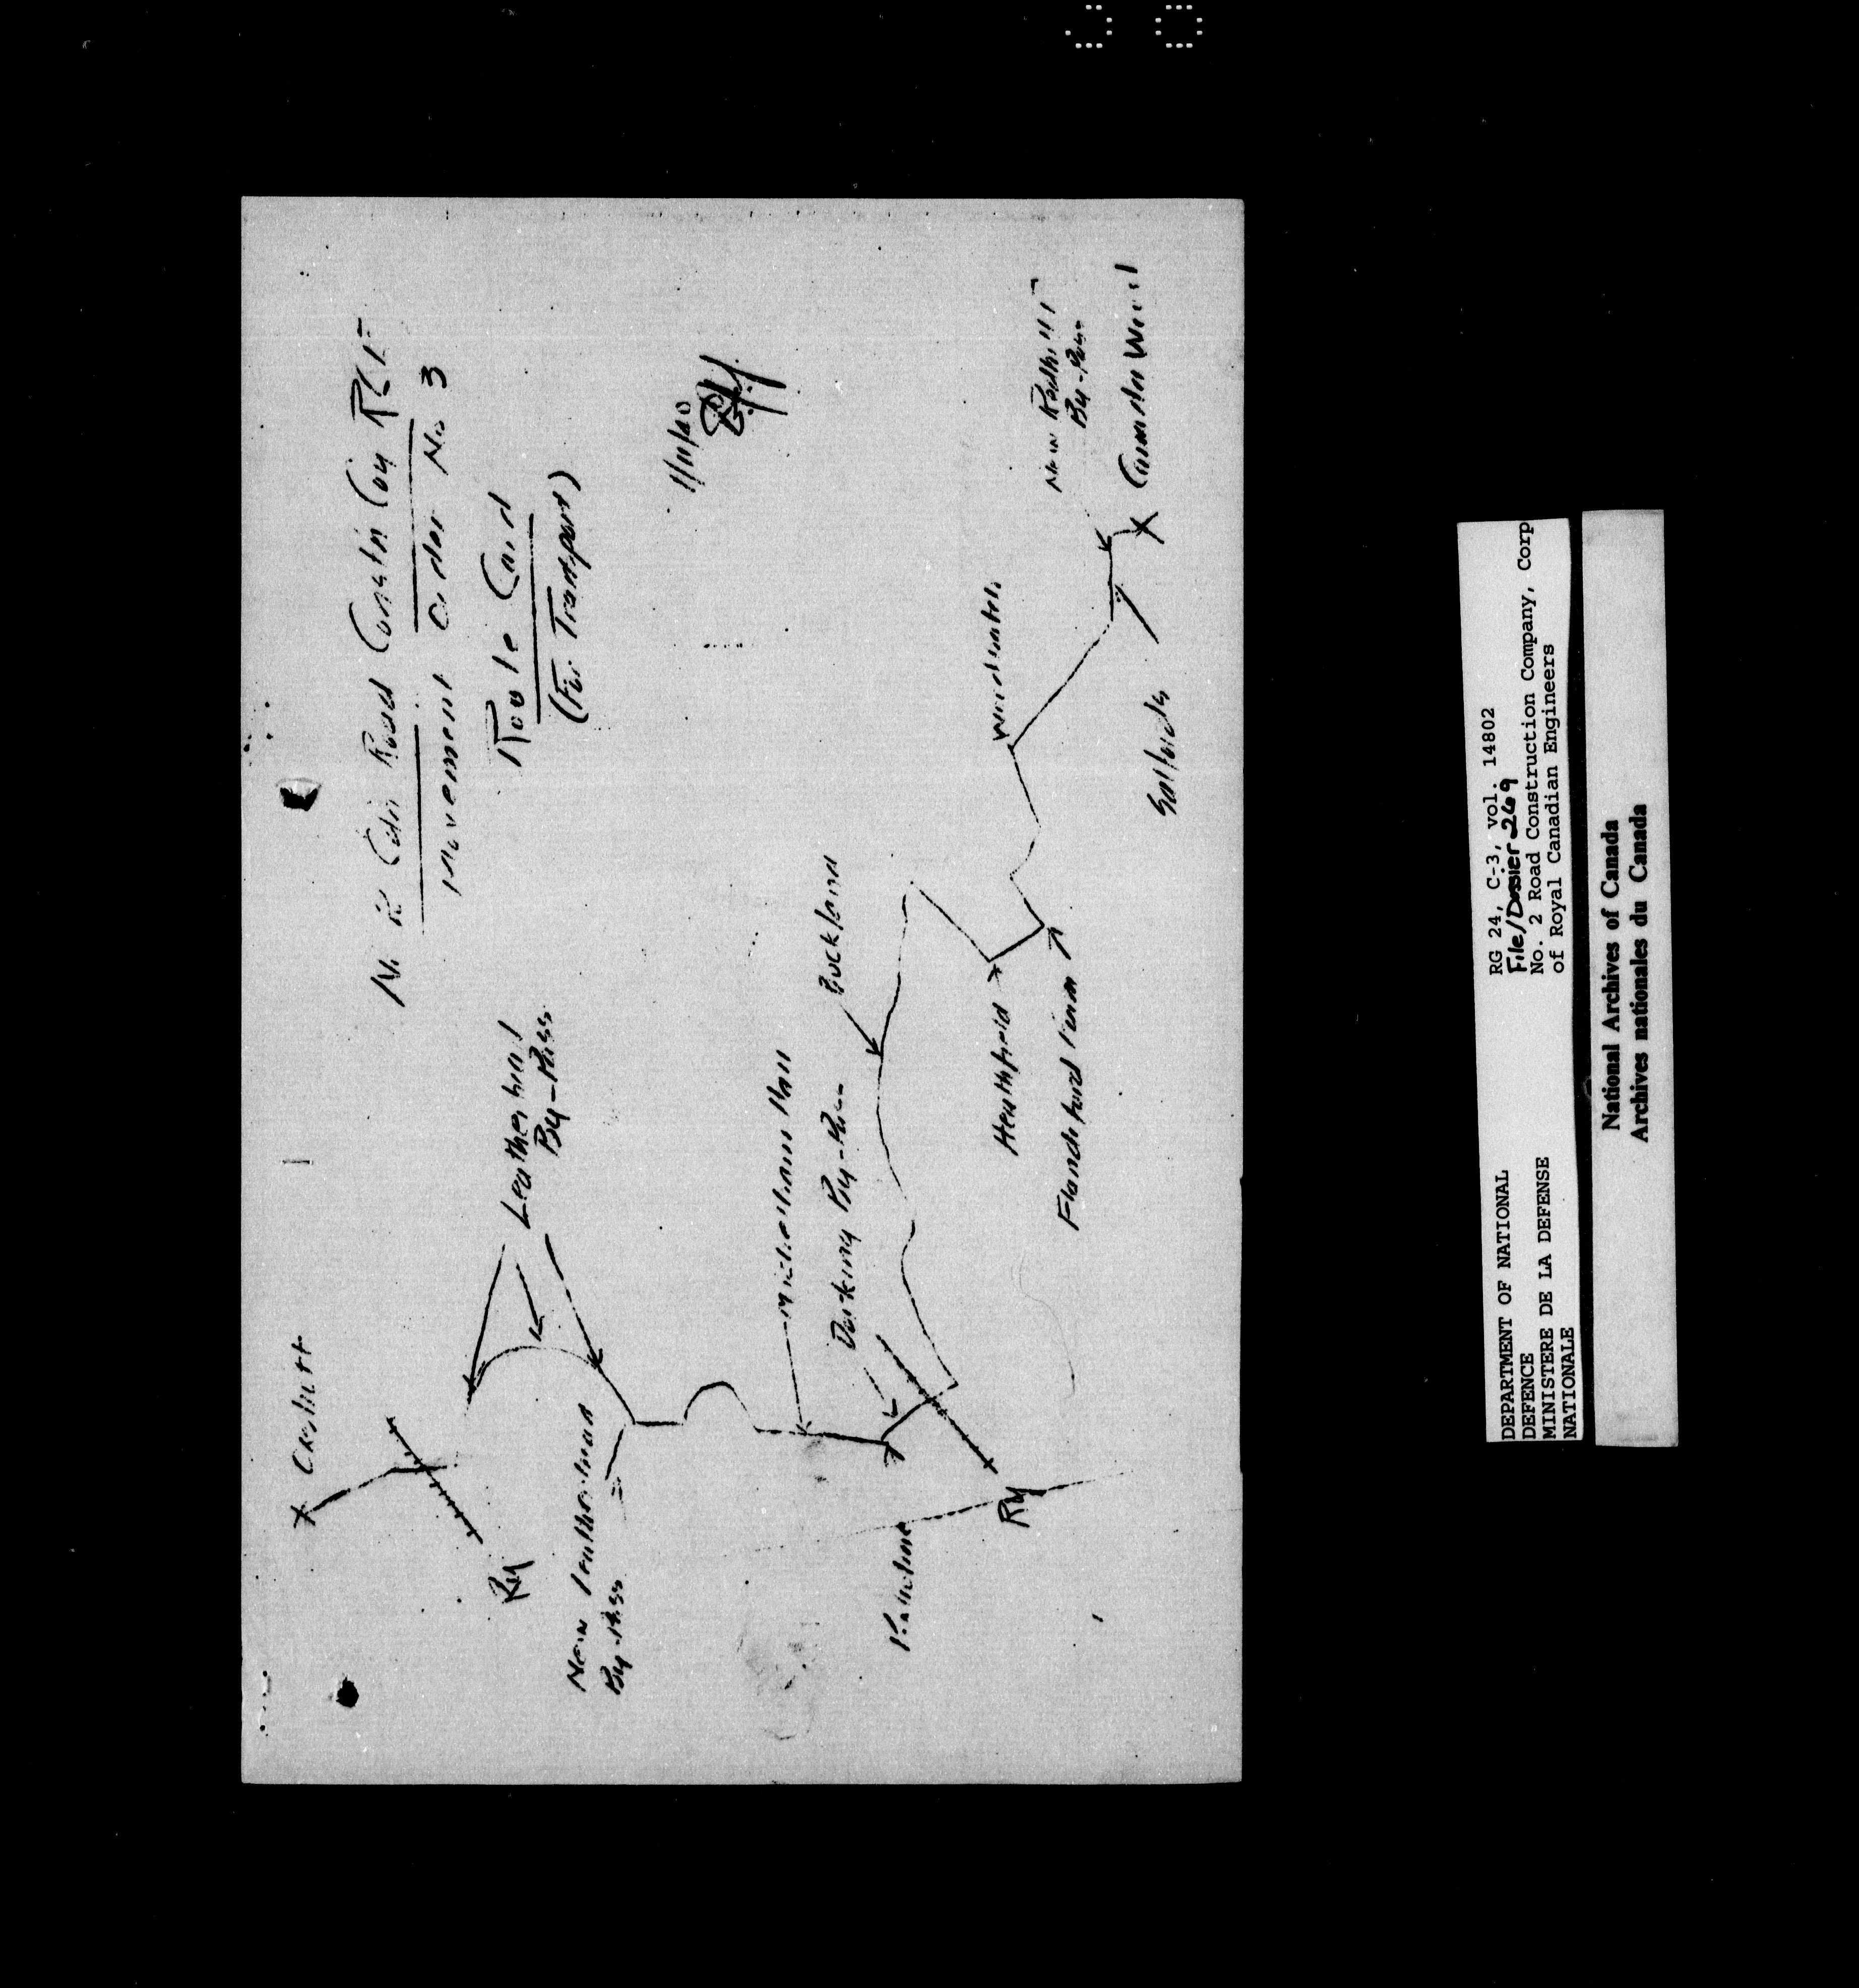 No 2 Cdn Road Constn Coy RCE
Movement Order No 3
Route Card
(For Transport)
1/11/40
Leatherhead
By-Pass
Ry
New Leatherhead
By-Pass
Mickleham Hall
Dorking By-Pass
Buckland
Ry
Heathfield
Flanchford Farm
Woodhatch
Salfords
New Redhill
By-Pass
RG 24, C-3, vol. 14802
File/Dossier 269
No. 2 Road Construction Company, Corp
of Royal Canadian Engineers
DEPARTMENT OF NATIONAL
DEFENCE
MINISTERE DE LA DEFENSE
NATIONALE
National Archives of Canada
Archives nationales du Canada